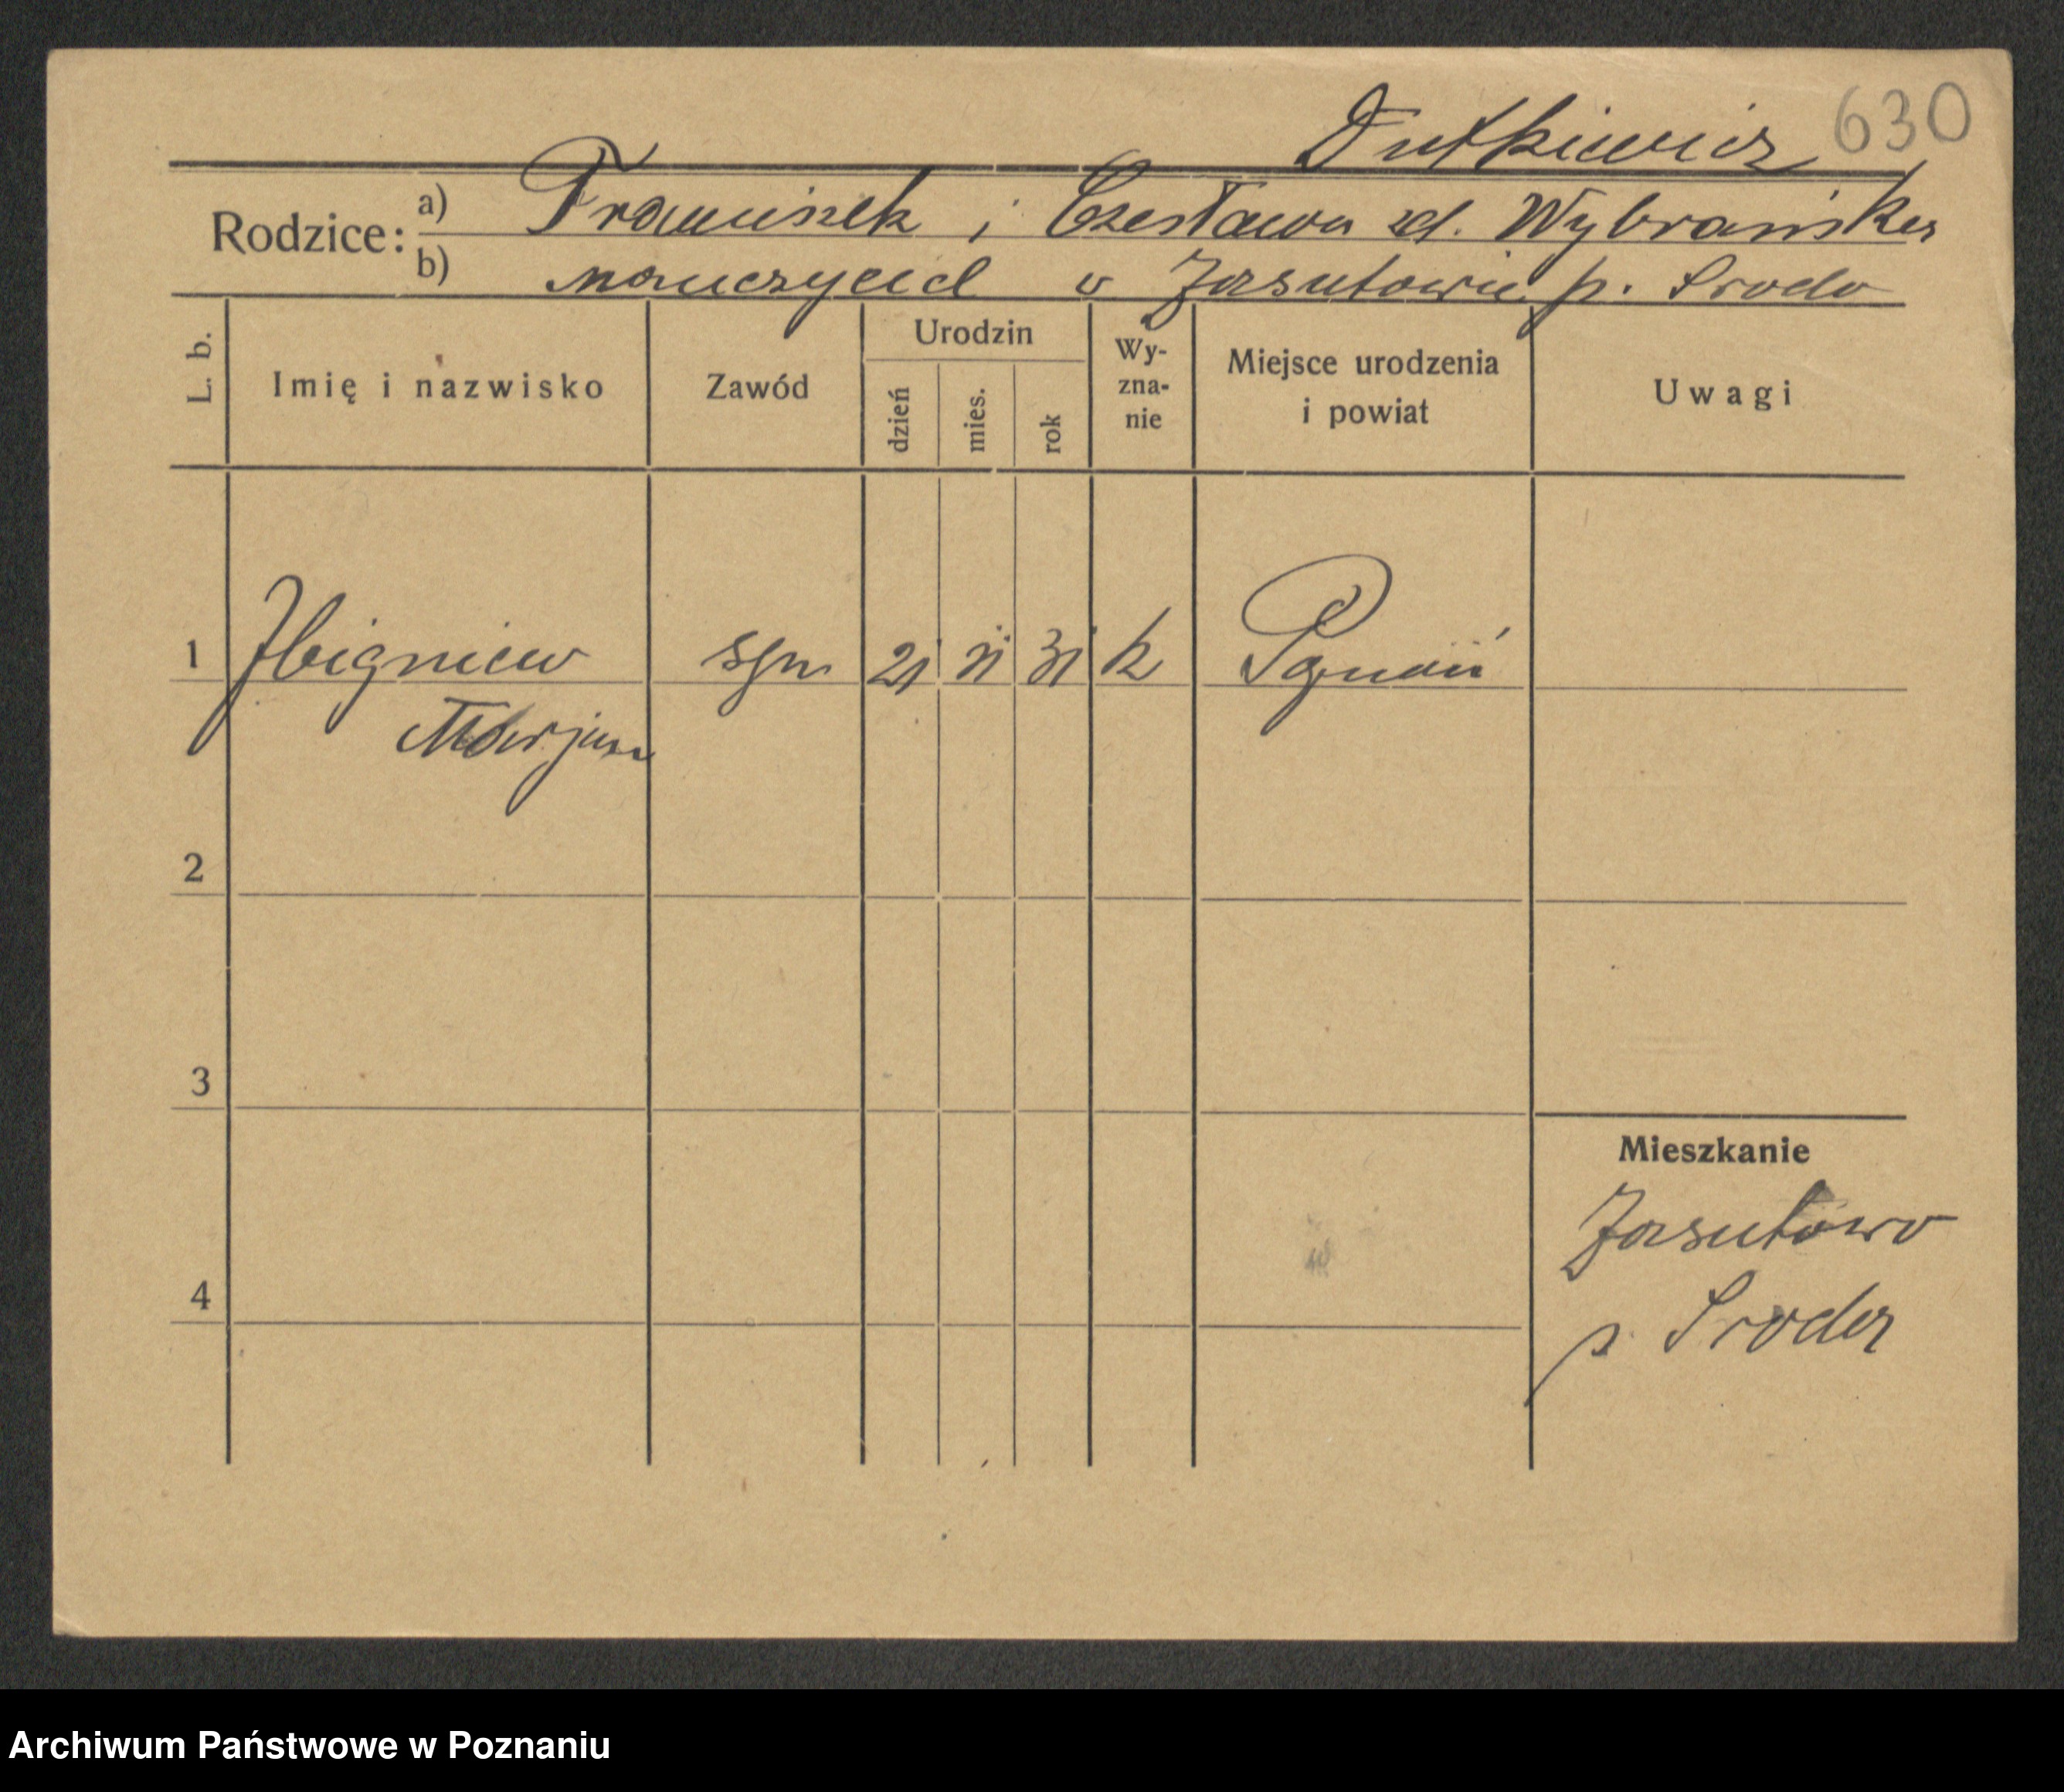 Dutkiewicz 630
Rodzice: a) Franciszek i Czesława zd. Wybrańska
b) nauczyciel w Jaszutowie p. Sroda
L. b. Imię i nazwisko Zawód Urodzin dzień mies. rok Wy-zna-nie Miejsce urodzenia i powiat Uwagi
1 Zbigniew syn 21 XI 31 k Poznań
Marjan
2
3
Mieszkanie
4
p. Sroda
Archiwum Państwowe w Poznaniu